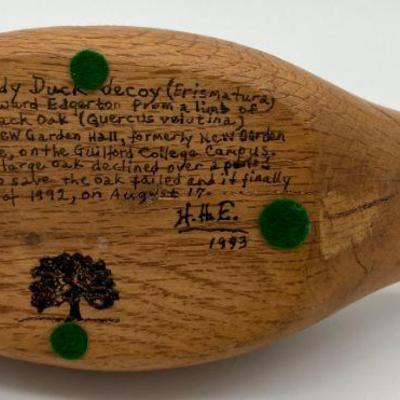 dy Duck decoy (Erismatura)
ward Edgerton from a limb of
ack Oak (Quercus velutina)
New Garden Hall, formerly New Garden
e, on the Guilford College Campus,
large oak declined over a period
o save the oak failed and it finally
of 1992, on August 17.
H.H.E.
1993